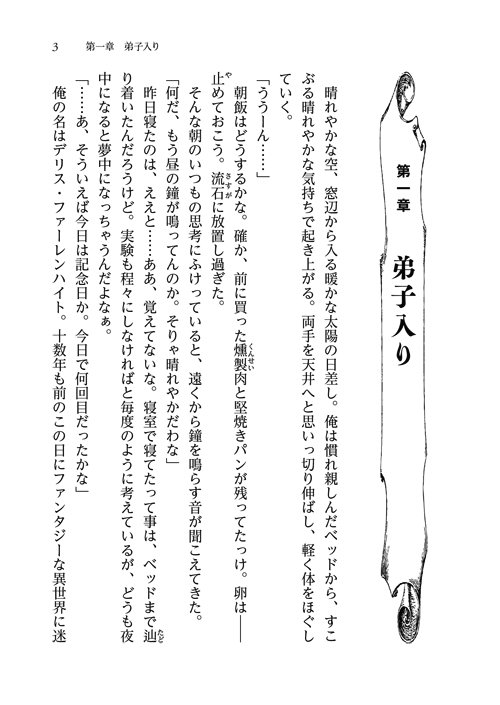 3 第一章 弟子入り
第一章
弟子入り
晴れやかな空、窓辺から入る暖かな太陽の日差し。俺は慣れ親しんだベッドから、すこ
ぶる晴れやかな気持ちで起き上がる。両手を天井へと思いっ切り伸ばし、軽く体をほぐし
ていく。
「ううーん……」
朝飯はどうするかな。確か、前に買った燻製肉と堅焼きパンが残ってたっけ。卵は――
止めておこう。流石に放置し過ぎた。
そんな朝のいつもの思考にふけっていると、遠くから鐘を鳴らす音が聞こえてきた。
「何だ、もう昼の鐘が鳴ってんのか。そりゃ晴れやかだわな」
昨日寝たのは、ええと……ああ、覚えてないな。寝室で寝てたって事は、ベッドまで辿
り着いたんだろうけど。実験も程々にしなければと毎度のように考えているが、どうも夜
中になると夢中になっちゃうんだよなぁ。
「……あ、そういえば今日は記念日か。今日で何回目だったかな」
俺の名はデリス・ファーレンハイト。十数年も前のこの日にファンタジーな異世界に迷